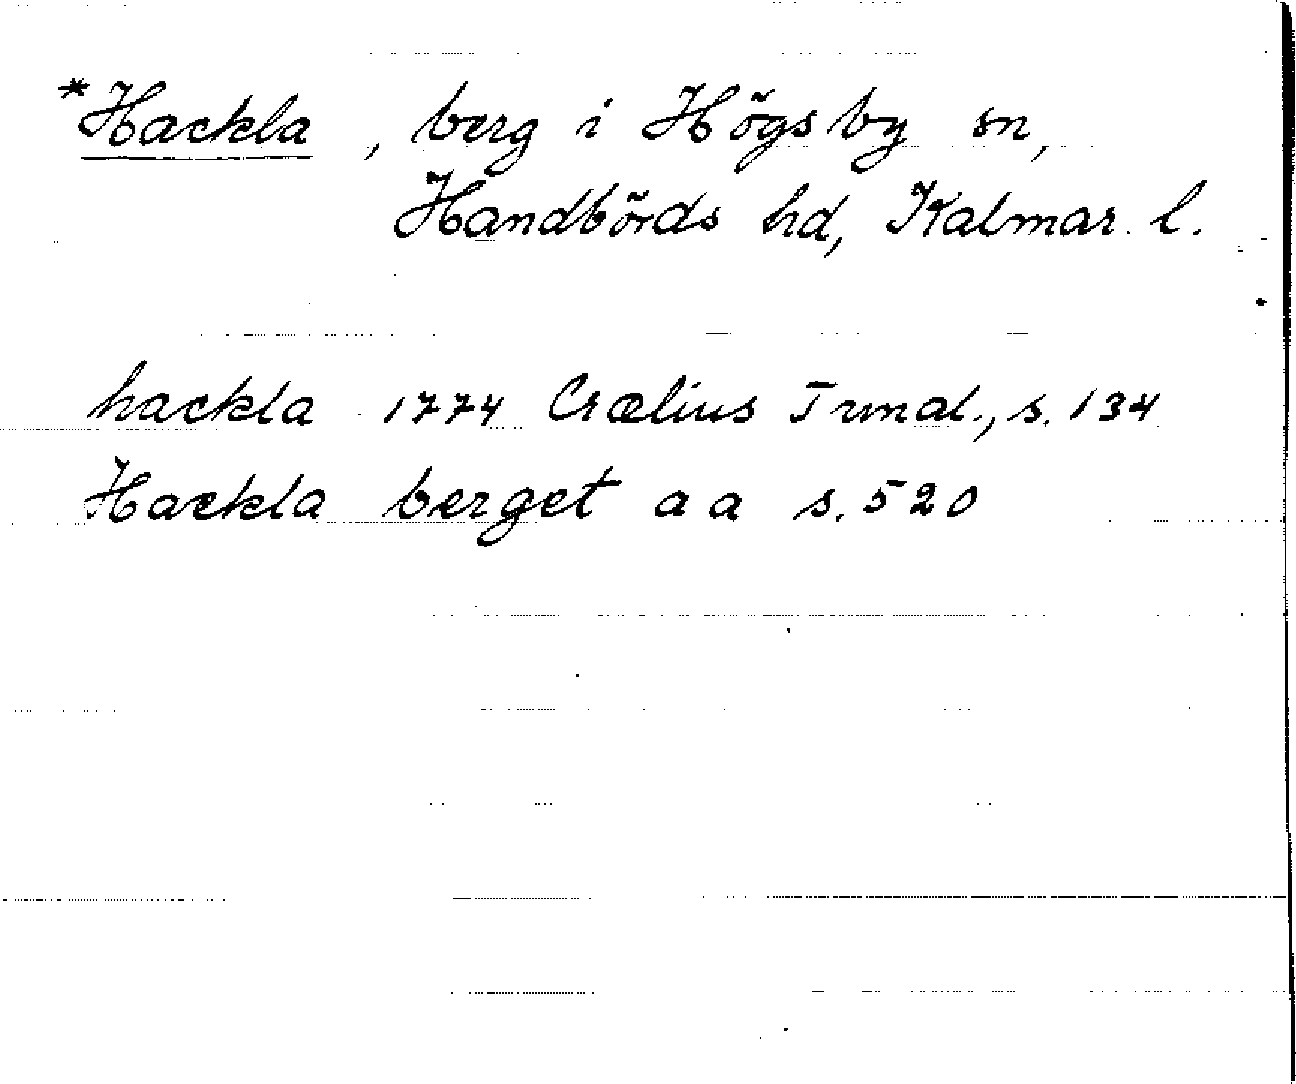 *Hackla, berg i Högsby sn,
Handbörds hd, Kalmar l.
hackla 1774 Craelius Trmål., s. 134
Hackla berget a a s. 520